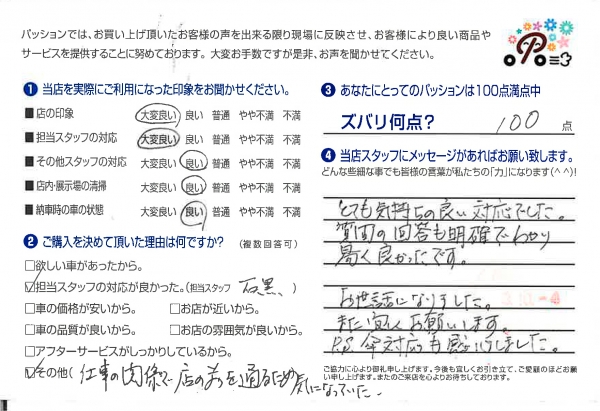 パッションでは、お買い上げ頂いたお客様の声を出来る限り現場に反映させ、お客様により良い商品や
サービスを提供することに努めております。 大変お手数ですが是非、お声を聞かせてください。
❶ 当店を実際にご利用になった印象をお聞かせください。
■店の印象 大変良い 良い 普通 やや不満 不満
■担当スタッフの対応 大変良い 良い 普通 やや不満 不満
■その他スタッフの対応 大変良い 良い 普通 やや不満 不満
■店内・展示場の清掃 大変良い 良い 普通 やや不満 不満
■納車時の車の状態 大変良い 良い 普通 やや不満 不満
❷ ご購入を決めて頂いた理由は何ですか? (複数回答可)
□欲しい車があったから。
☑担当スタッフの対応が良かった。(担当スタッフ 石黒 )
□車の価格が安いから。 □お店が近いから。
□車の品質が良いから。 □お店の雰囲気が良いから。
□アフターサービスがしっかりしているから。
☑その他( 仕事の関係で店の前を通るため気になっていた。
❸ あなたにとってのパッションは100点満点中
ズバリ何点? 100 点
❹ 当店スタッフにメッセージがあればお願い致します。
どんな些細な事でも皆様の言葉が私たちの「力」になります(^^)!
とても気持ちの良い対応でした。
質問の回答も明確でわかり
易く良かったです。
お世話になりました。
また宜しくお願いします。
P.S 傘対応も感心しました。
ご協力に心より御礼申し上げます。今後も宜しくお引き立て、ご愛顧のほどお願い
申し上げます。またのご来店を心よりお待ちしております。